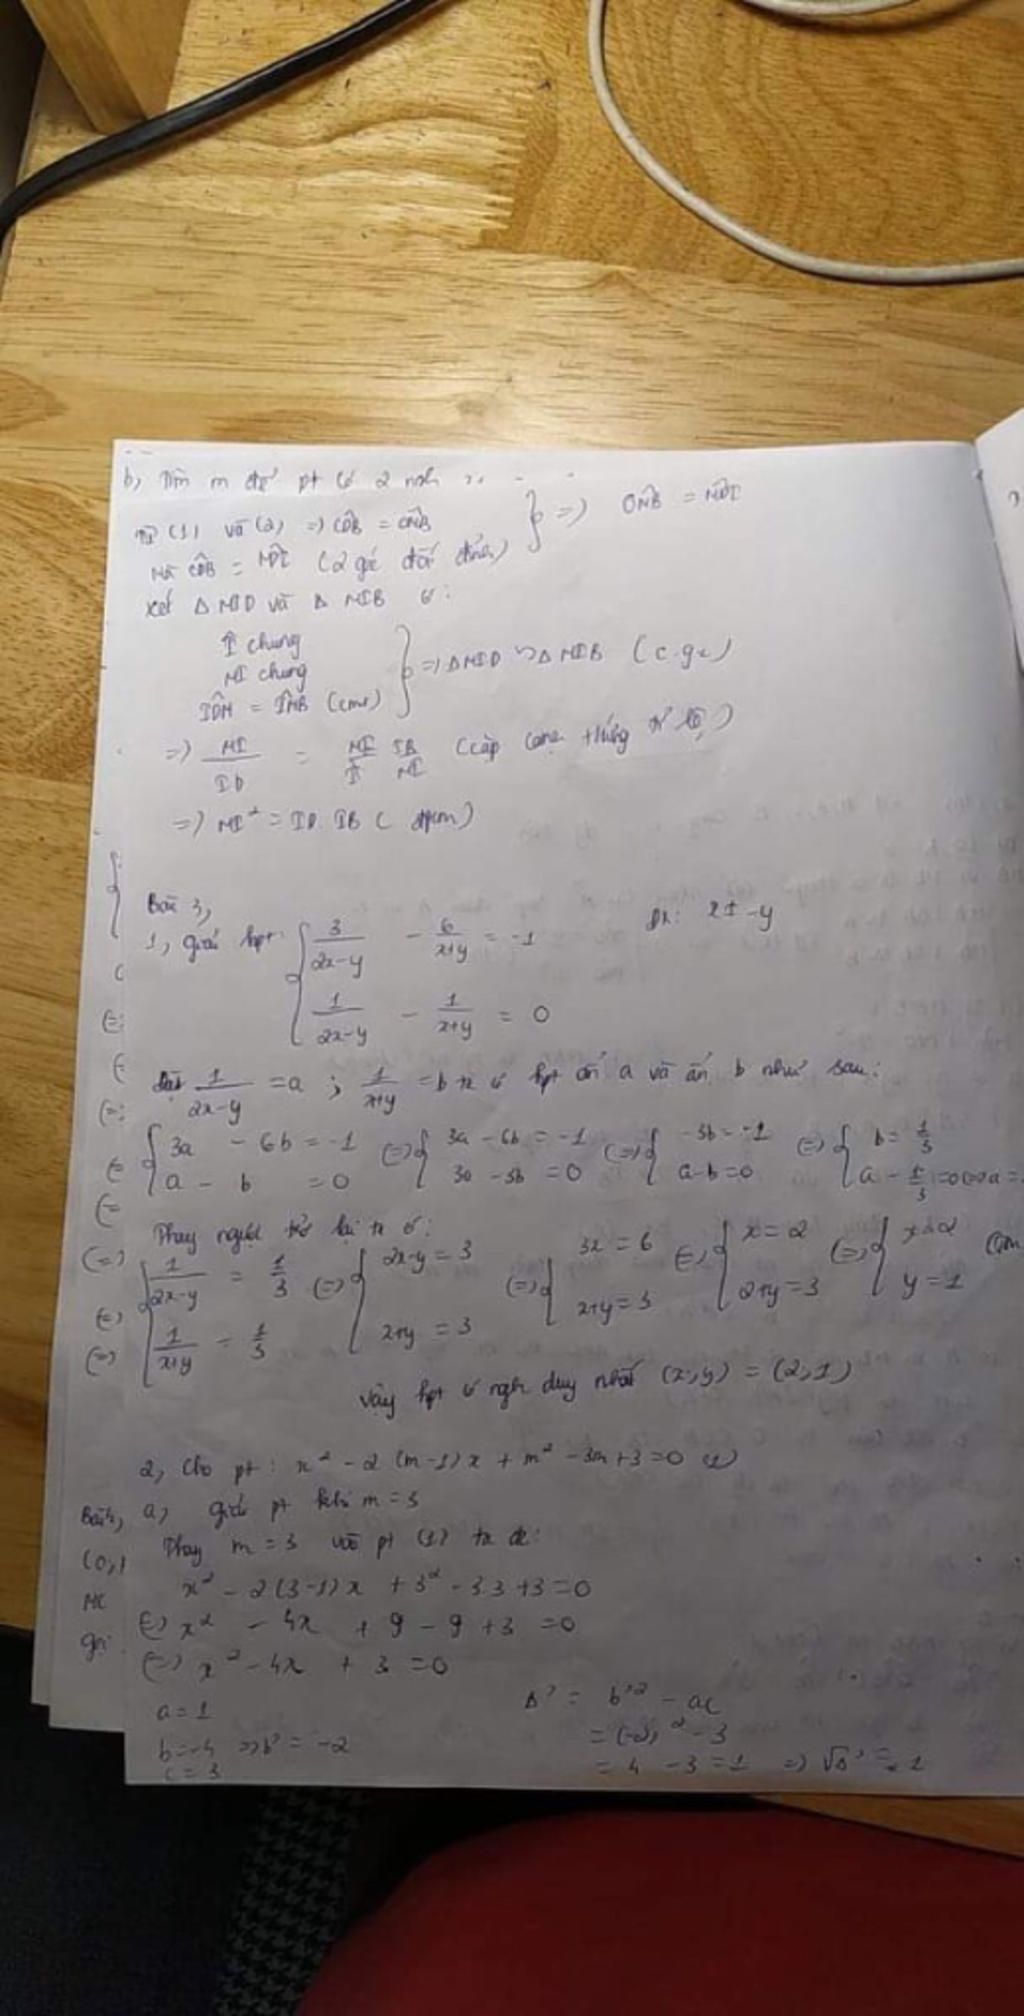 b, Tìm m để pt có 2 noh
Từ (1) và (2) => CDB = ONB } => ONB = NDI
Mà CDB = MDI (2 góc đối đỉnh)
xét Δ MID và Δ MIB có:
Î chung
MI chung
IDM = IMB (cmt) } => Δ MID ∽ Δ MIB (c.g.c)
=> MI/ID = IB/MI (cặp cạnh tỉ lệ)
=> MI² = ID. IB (đpcm)
Bài 3,
1, giải hpt: { 3/(2x-y) - 6/(x+y) = -1 đk: -y
1/(2x-y) - 1/(x+y) = 0
đặt 1/(2x-y) = a ; 1/(x+y) = b ta có hpt ẩn a và ẩn b như sau:
{ 3a - 6b = -1 (=) { 3a - 6b = -1 (=) { -3b = -1 (=) { b = 1/3
a - b = 0 3a - 3b = 0 a-b=0 a - 1/3 =0 (=) a =
Thay ngược trở lại ta có:
(=) { 1/(2x-y) = 1/3 (=) { 2x-y = 3 (=) { 3x = 6 (=) { x = 2 (=) { x = 2
(=) 1/(x+y) = 1/3 x+y = 3 x+y = 3 2+y = 3 y = 1
Vậy hpt có ngh duy nhất (x;y) = (2,1)
2, Cho pt: x² - 2 (m-1) x + m² - 3m + 3 = 0 (1)
a, giải pt khi m = 3
Thay m = 3 vào pt (1) ta đc:
x² - 2(3-1)x + 3² - 3.3 + 3 = 0
(=) x² - 4x + 9 - 9 + 3 = 0
(=) x² - 4x + 3 = 0
a = 1
b = -4 => b' = -2
c = 3
Δ' = b'² - ac
= (-2)² - 3
= 4 - 3 = 1 => √Δ' = 1